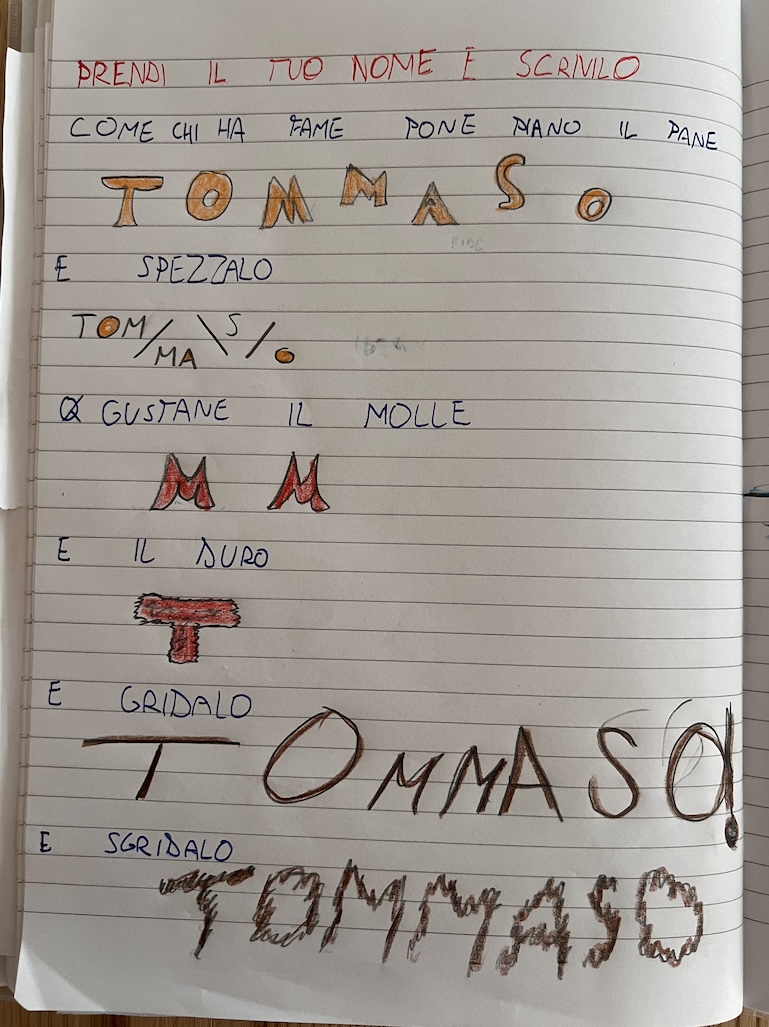 PRENDI IL TUO NOME E SCRIVILO
COME CHI HA FAME PONE PIANO IL PANE
TOMMASO
E SPEZZALO
TOM/MA\S/O
GUSTANE IL MOLLE
M M
E IL DURO
T
E GRIDALO
TOMMASO!
E SGRIDALO
TOMMASO